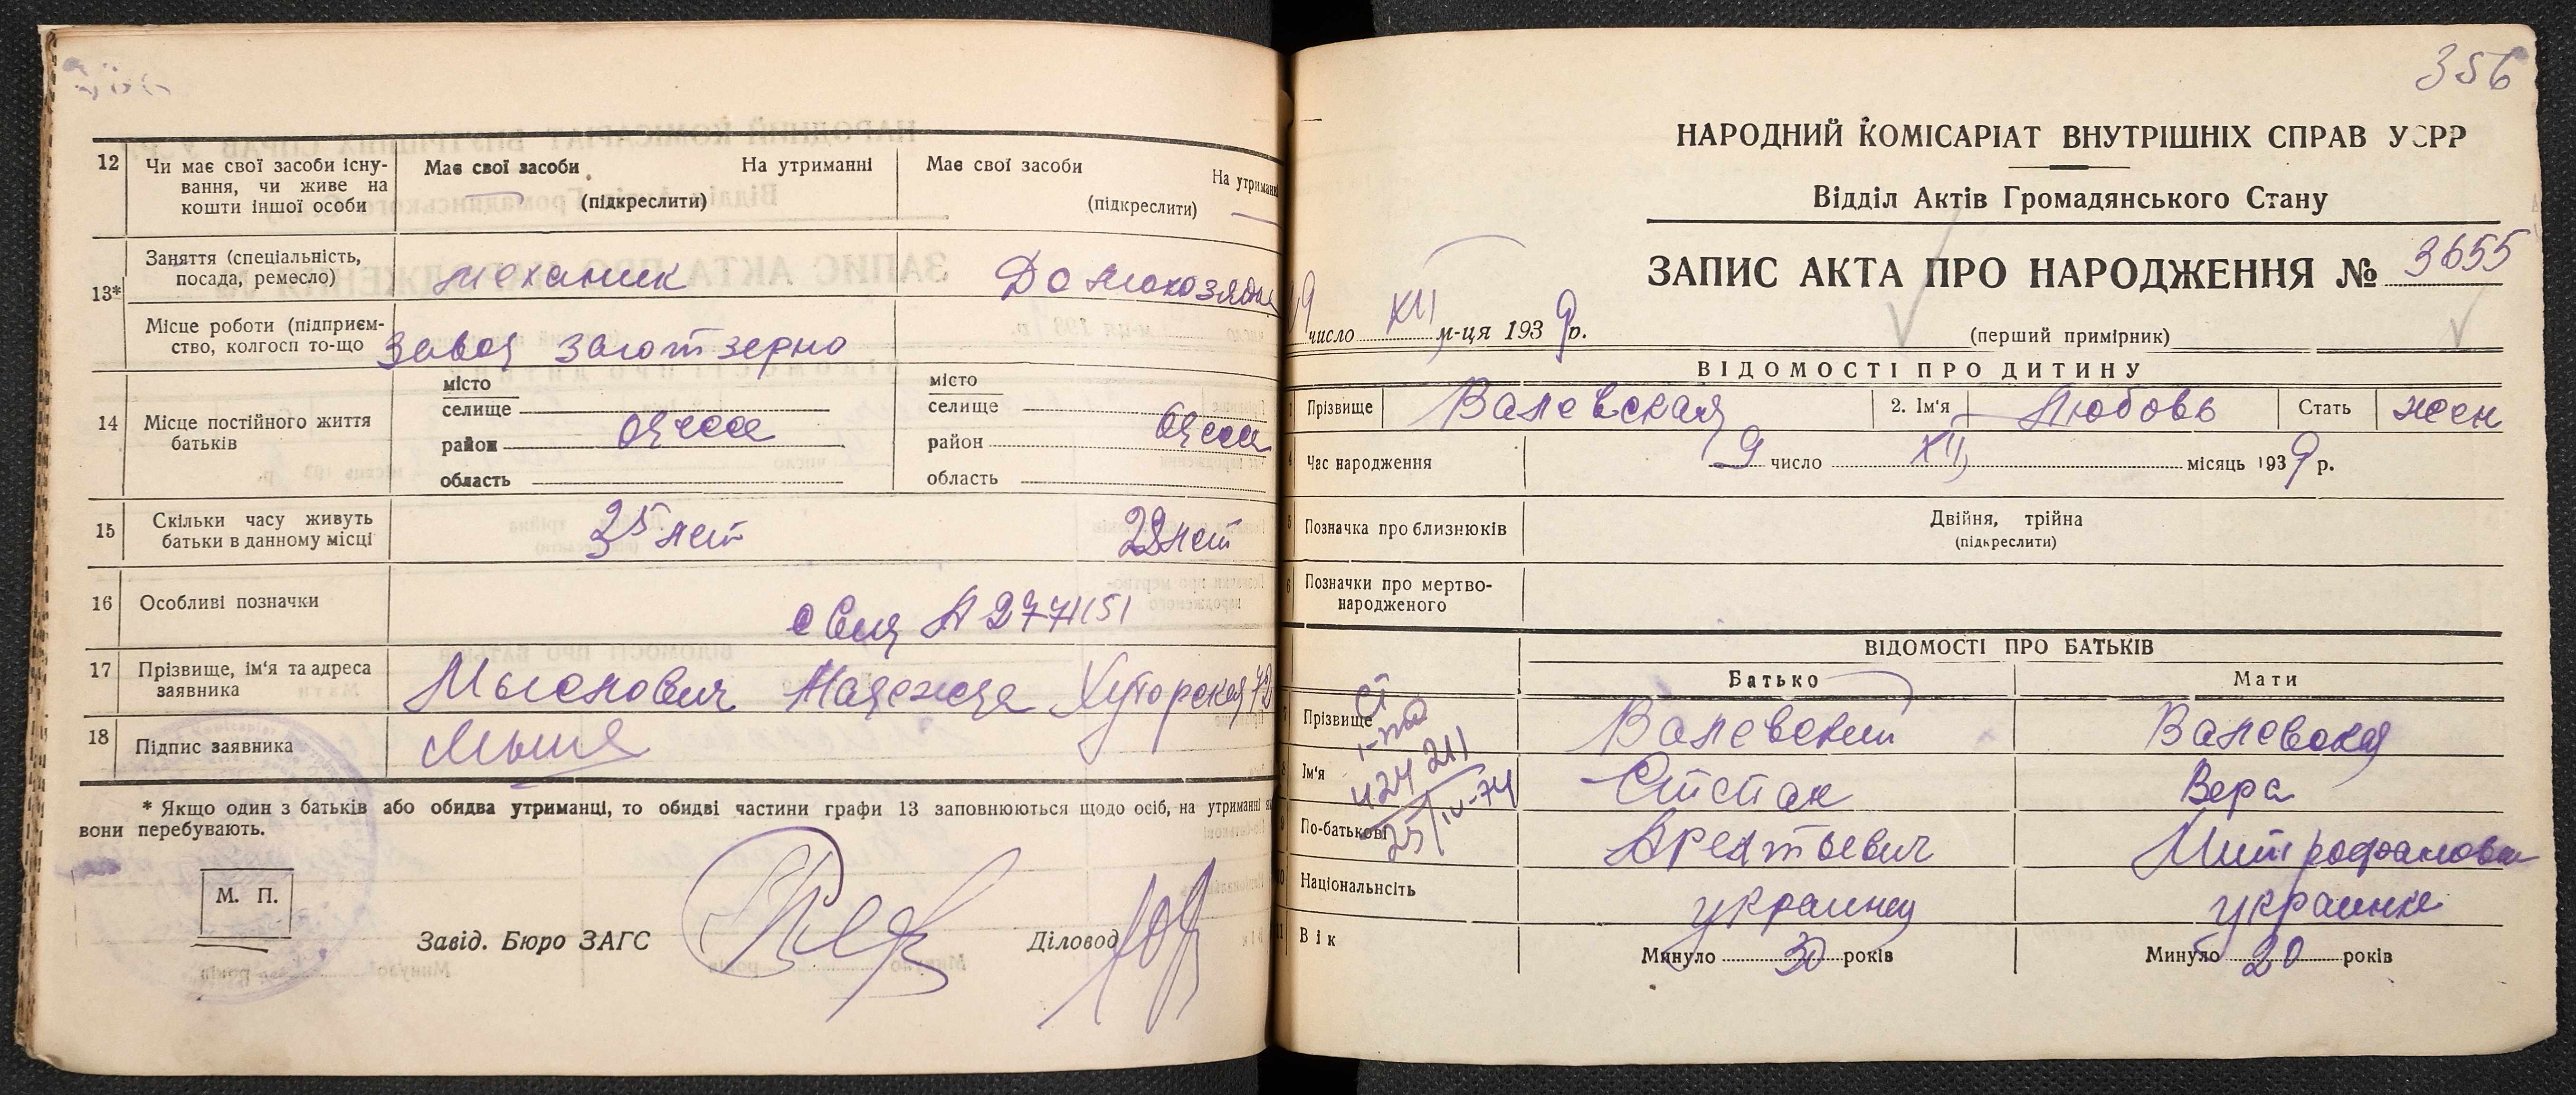 12 Чи має свої засоби існу-
вання, чи живе на
кошти іншої особи
Має свої засоби На утриманні
(підкреслити)
Має свої засоби На утриманні
(підкреслити)
13* Заняття (спеціальність,
посада, ремесло)
механик
Домохозяйка
Місце роботи (підприєм-
ство, колгосп то-що
Завод Заготзерно
14 Місце постійного життя
батьків
місто
селище
район Одесса
область
місто
селище
район Одесса
область
15 Скільки часу живуть
батьки в данному місці
25 лет
22 лет
16 Особливі позначки
17 Прізвище, ім'я та адреса
заявника
Надежда Хуторская 72
18 Підпис заявника
* Якщо один з батьків або обидва утриманці, то обидві частини графи 13 заповнюються щодо осіб, на утриманні
вони перебувають.
М. П.
Завід. Бюро ЗАГС
Діловод
356
НАРОДНИЙ КОМІСАРІАТ ВНУТРІШНІХ СПРАВ УСРР
Відділ Актів Громадянського Стану
ЗАПИС АКТА ПРО НАРОДЖЕННЯ № 3655
число XII м-ця 1939 р.
(перший примірник)
ВІДОМОСТІ ПРО ДИТИНУ
Прізвище Валевская 2. Ім'я Любовь Стать жен
Час народження 9 число XII місяць 1939 р.
Позначка про близнюків
Двійня, трійна
(підкреслити)
Позначки про мертво-
народженого
ВІДОМОСТІ ПРО БАТЬКІВ
Батько Мати
Прізвище Валевский Валевская
Ім'я Степан Вера
По-батькові Арентьевич Митрофановна
Національнсіть украинец украинка
Вік
Минуло 30 років
Минуло 20 років